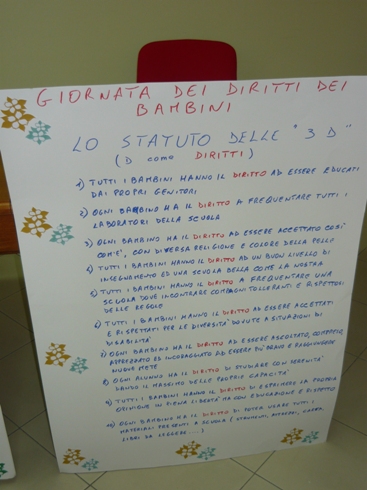 GIORNATA DEI DIRITTI DEI
BAMBINI
LO STATUTO DELLE "3 D"
(D COME DIRITTI)
1) TUTTI I BAMBINI HANNO IL DIRITTO AD ESSERE EDUCATI
DAI PROPRI GENITORI
2) OGNI BAMBINO HA IL DIRITTO A FREQUENTARE TUTTI I
LABORATORI DELLA SCUOLA
3) OGNI BAMBINO HA IL DIRITTO AD ESSERE ACCETTATO COSÌ
COM'È, CON DIVERSA RELIGIONE E COLORE DELLA PELLE
4) TUTTI I BAMBINI HANNO IL DIRITTO AD UN BUON LIVELLO DI
INSEGNAMENTO ED UNA SCUOLA BELLA COME LA NOSTRA
5) TUTTI I BAMBINI HANNO IL DIRITTO A FREQUENTARE UNA
SCUOLA DOVE INCONTRARE COMPAGNI TOLLERANTI E RISPETTOSI
DELLE REGOLE
6) TUTTI I BAMBINI HANNO IL DIRITTO AD ESSERE ACCETTATI
E RISPETTATI PER LE DIVERSITÀ DOVUTE A SITUAZIONI DI
DISABILITÀ
7) OGNI BAMBINO HA IL DIRITTO AD ESSERE ASCOLTATO, COMPRESO,
APPREZZATO ED INCORAGGIATO AD ESSERE PIÙ BRAVO E RAGGIUNGERE
NUOVE METE
8) OGNI ALUNNO HA IL DIRITTO DI STUDIARE CON SERENITÀ
DANDO IL MASSIMO DELLE PROPRIE CAPACITÀ
9) TUTTI I BAMBINI HANNO IL DIRITTO DI ESPRIMERE LA PROPRIA
OPINIONE IN PIENA LIBERTÀ MA CON EDUCAZIONE E RISPETTO
10) OGNI BAMBINO HA IL DIRITTO DI POTER USARE TUTTI I
MATERIALI PRESENTI A SCUOLA (STRUMENTI,
LIBRI DA LEGGERE....)